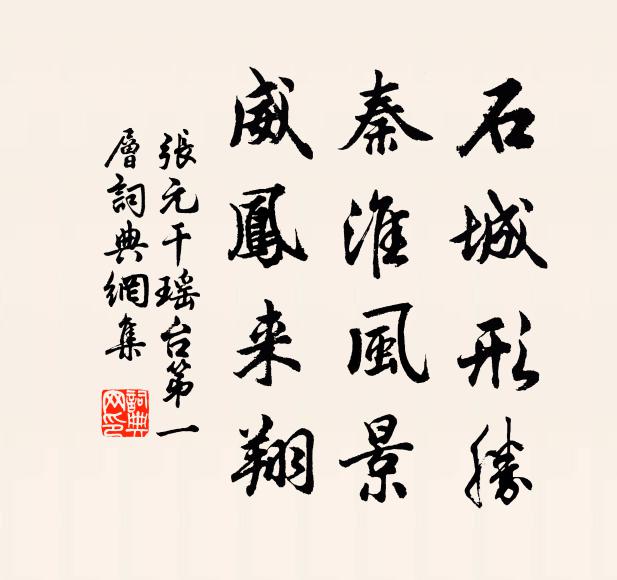 石城形勝
秦淮風景
威鳳来翔
張元干瑶台第一
層詞典網集
詞典
网印